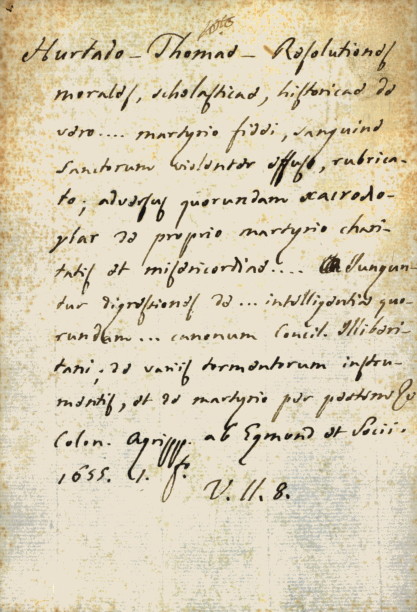 Hurtado – Thomae – Resolutiones
morales, scholasticae, historicae de
vero .... martyrio fidei, sanguine
Sanctorum violenter effuso, rubrica-
to; adversus quorundam
de proprio martyrio chari-
tatis et misericordiae .... Jungun-
tur digressiones de ... intelligentia quo-
rundam ... canonum Concil. Illiberi-
tani; de variis tormentorum instru-
mentis, et de martyrio per pestem
Colon. Agripp. ab Egmond et Socii.
1655. 1. f.
V. 11. 8.